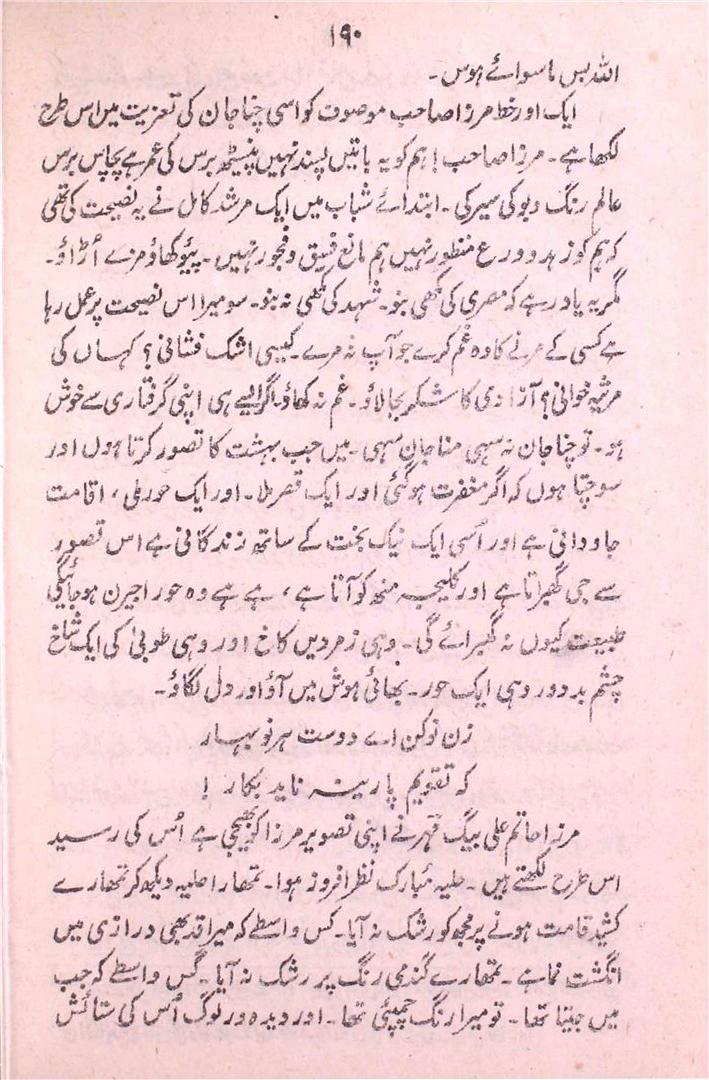 ۱۹۰
اللہ بس ماسوائے ہوس۔
ایک اور خط مرزا صاحب موصوف کو اسی چنا جان کی تعزیت میں اس طرح
لکھا ہے۔ مرزا صاحب! ہم کو یہ باتیں پسند نہیں پنیسٹھ برس کی عمر ہے پچاس برس
عالم رنگ و بو کی سیر کی۔ ابتدائے شباب میں ایک مرشد کامل نے یہ نصیحت کی تھی
کہ ہم کو زہد و ورع منظور نہیں ہم مانع فسق و فجور نہیں۔ پیؤ کھاؤ مزے اُڑاؤ۔
مگر یہ یاد رہے کہ مصری کی مکھی بنو۔ شہد کی مکھی نہ بنو۔ سو میرا اس نصیحت پر عمل رہا
ہے کسی کے مرنے کا وہ غم کرے جو آپ نہ مرے۔ کیسی اشک فشانی؟ کہاں کی
مرثیہ خوانی؟ آزادی کا شکر بجا لاؤ۔ غم نہ کھاؤ۔ اگر ایسے ہی اپنی گرفتاری سے خوش
ہو۔ تو چنا جان نہ سہی منا جان سہی۔ میں جب بہشت کا تصور کرتا ہوں اور
سوچتا ہوں کہ اگر مغفرت ہو گئی اور ایک قصر ملا۔ اور ایک حور ملی، اقامت
جاودانی ہے اور اُسی ایک نیک بخت کے ساتھ زندگانی ہے اس تصور
سے جی گھبراتا ہے اور کلیجہ منھ کو آتا ہے، ہے ہے وہ حور اجیرن ہو جائیگی
طبیعت کیوں نہ گھبرائے گی۔ وہی زمردیں کاخ اور وہی طوبیٰ کی ایک شاخ
چشم بد دور وہی ایک حور۔ بھائی ہوش میں آؤ اور دل لگاؤ۔
زن نو کن اے دوست ہر نو بہار
کہ تقویم پارینہ ناید بکار!
مرزا حاتم علی بیگ مہر نے اپنی تصویر مرزا کو بھیجی ہے اُس کی رسید
اس طرح لکھتے ہیں۔ حلیہ مُبارک نظر افروز ہوا۔ تمھارا حلیہ دیکھ کر تمھارے
کشیدہ قامت ہونے پر مجھ کو رشک نہ آیا۔ کس واسطے کہ میرا قد بھی درازی میں
انگشت نما ہے۔ تمھارے گندمی رنگ پر رشک نہ آیا۔ کس واسطے کہ جب
میں جیتا تھا۔ تو میرا رنگ چمپئی تھا۔ اور دیدہ ور لوگ اُس کی ستائش